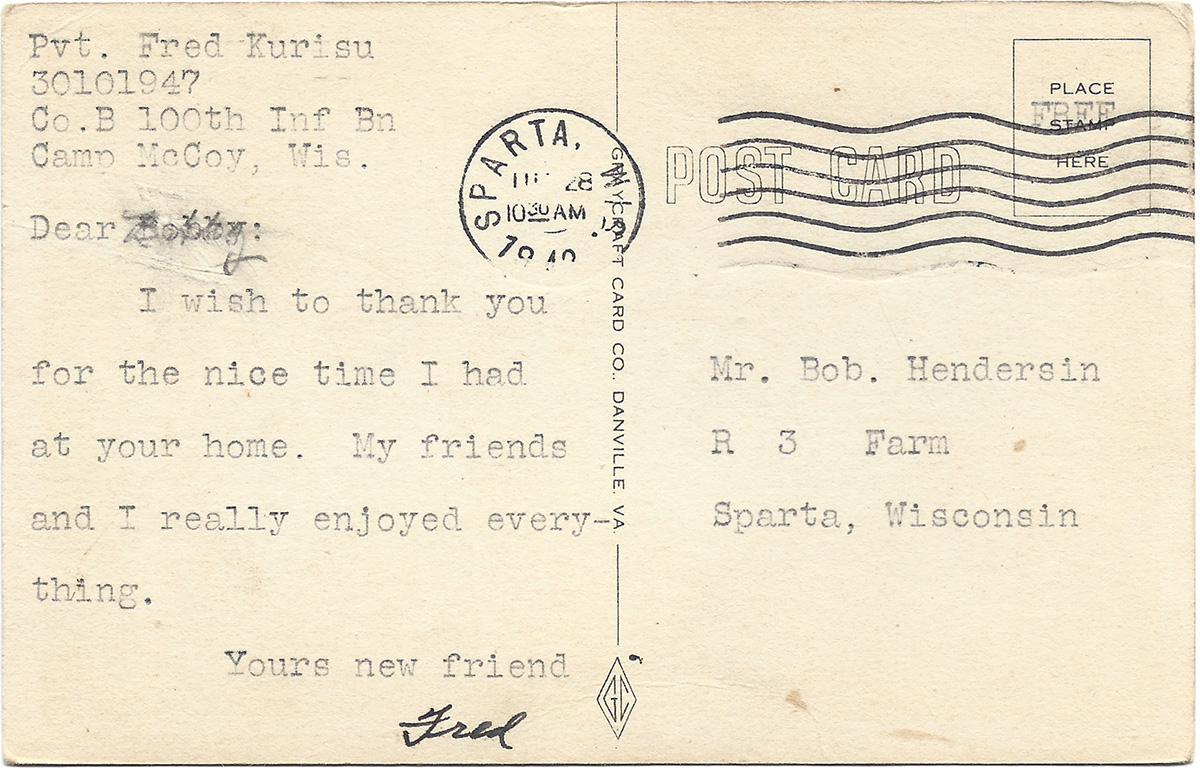 Pvt. Fred Kurisu
30101947
Co.B 100th Inf Bn
Camp McCoy, Wis.
Dear Bobby:
I wish to thank you
for the nice time I had
at your home. My friends
and I really enjoyed every-
thing.
Yours new friend
Fred
SPARTA,
28
10 30 AM
GRAYCRAFT CARD CO., DANVILLE, VA.
GC
POST CARD
PLACE
FREE
STAMP
HERE
Mr. Bob. Hendersin
R 3 Farm
Sparta, Wisconsin